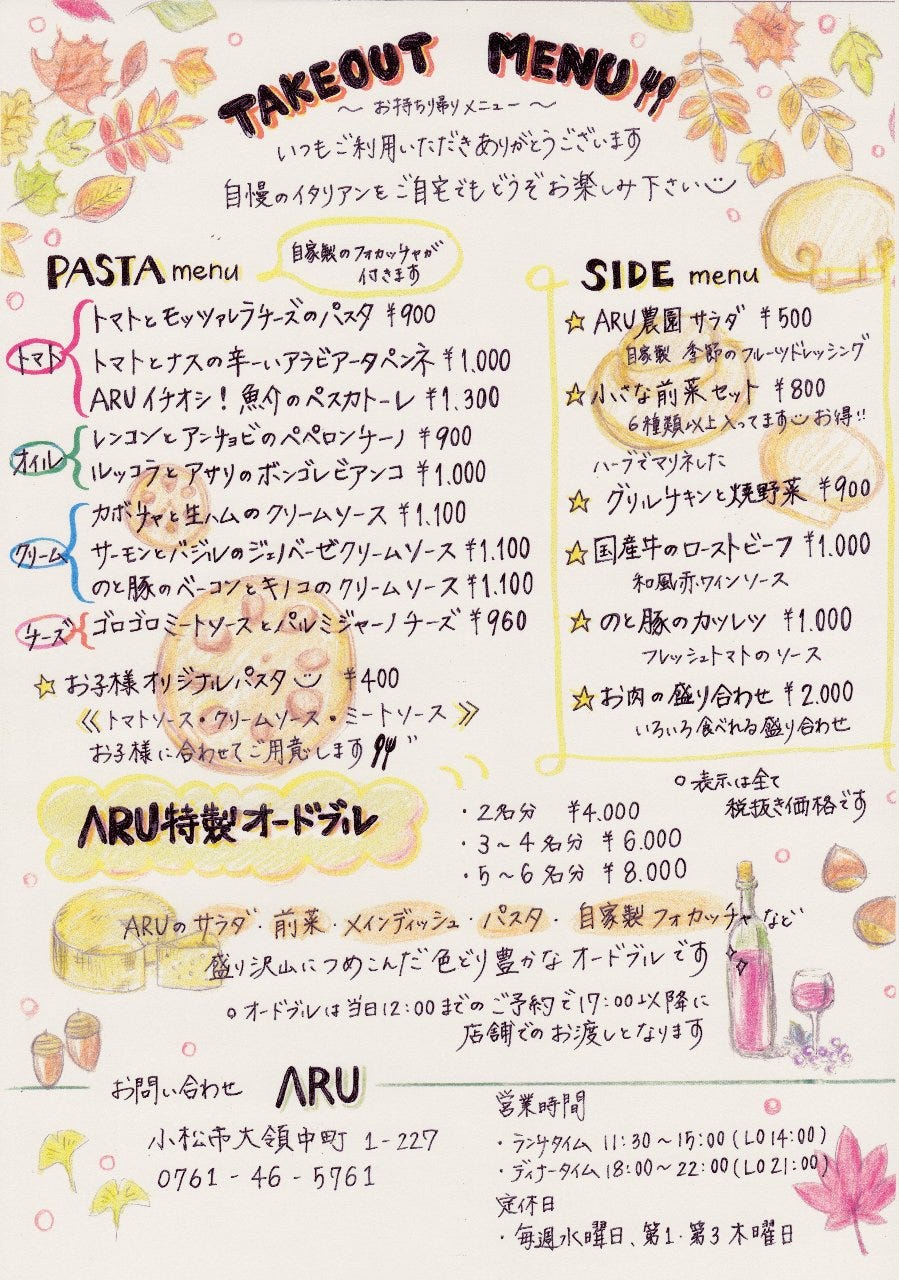 TAKEOUT MENU
〜 お持ち帰りメニュー 〜
いつもご利用いただきありがとうございます
自慢のイタリアンをご自宅でもどうぞお楽しみ下さい
PASTA menu
自家製のフォカッチャが
付きます
トマト
トマトとモッツァレラチーズのパスタ ¥900
トマトとナスの辛ーいアラビアータペンネ ¥1.000
ARUイチオシ！魚介のペスカトーレ ¥1.300
オイル
レンコンとアンチョビのペペロンチーノ ¥900
ルッコラとアサリのボンゴレビアンコ ¥1.000
クリーム
カボチャと生ハムのクリームソース ¥1.100
サーモンとバジルのジェノベーゼクリームソース ¥1.100
のと豚のベーコンとキノコのクリームソース ¥1.100
チーズ
ゴロゴロミートソースとパルミジャーノチーズ ¥960
☆ お子様オリジナルパスタ ¥400
《トマトソース・クリームソース・ミートソース》
お子様に合わせてご用意します
SIDE menu
☆ ARU農園サラダ ¥500
自家製 季節のフルーツドレッシング
☆ 小さな前菜セット ¥800
6種類以上入ってます お得!!
ハーブでマリネした
☆ グリルチキンと焼野菜 ¥900
☆ 国産牛のローストビーフ ¥1.000
和風赤ワインソース
☆ のと豚のカツレツ ¥1.000
フレッシュトマトのソース
☆ お肉の盛り合わせ ¥2.000
いろいろ食べれる盛り合わせ
○表示は全て
税抜き価格です
ARU特製オードブル
・2名分 ¥4.000
・3〜4名分 ¥6.000
・5〜6名分 ¥8.000
ARUのサラダ・前菜・メインディッシュ・パスタ・自家製フォカッチャなど
盛り沢山につめこんだ色どり豊かなオードブルです
○オードブルは当日12:00までのご予約で17:00以降に
店舗でのお渡しとなります
お問い合わせ ARU
小松市大領中町 1-227
0761-46-5761
営業時間
・ランチタイム 11:30〜15:00(LO14:00)
・ディナータイム 18:00〜22:00(LO21:00)
定休日
・毎週水曜日、第1・第3木曜日